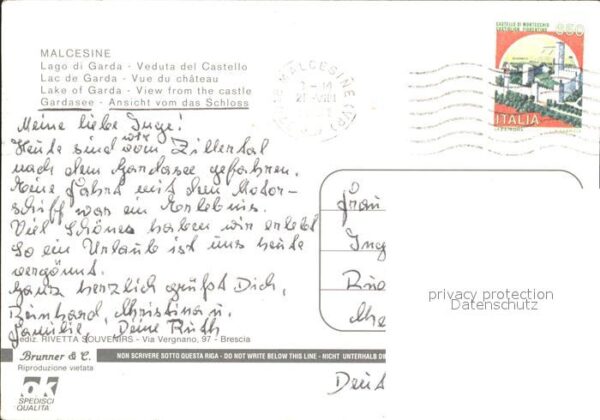 MALCESINE
Lago di Garda - Veduta del Castello
Lac de Garda - Vue du château
Lake of Garda - View from the castle
Gardasee - Ansicht vom das Schloss
Meine liebe Inge!
Heute sind wir vom Zillertal
nach dem Gardasee gefahren.
Fahrt mit dem Motor-
schiff war ein Erlebnis.
Viel Schönes haben wir erlebt
So ein Urlaub ist uns heute
vergönnt.
Ganz herzlich grüßt Dich,
Reinhard, Christina u.
Familie, Deine Ruth
ediz. RIVETTA SOUVENIRS - Via Vergnano, 97 - Brescia
Brunner & C.
Riproduzione vietata
NON SCRIVERE SOTTO QUESTA RIGA - DO NOT WRITE BELOW THIS LINE - NICHT UNTERHALB
ok
SPEDISCI
QUALITÀ
MALCESINE (VR)
CASTELLO DI MONTECCHIO
CASTIGLION FIORENTINO
650
ITALIA
Frau
Inge
privacy protection
Datenschutz